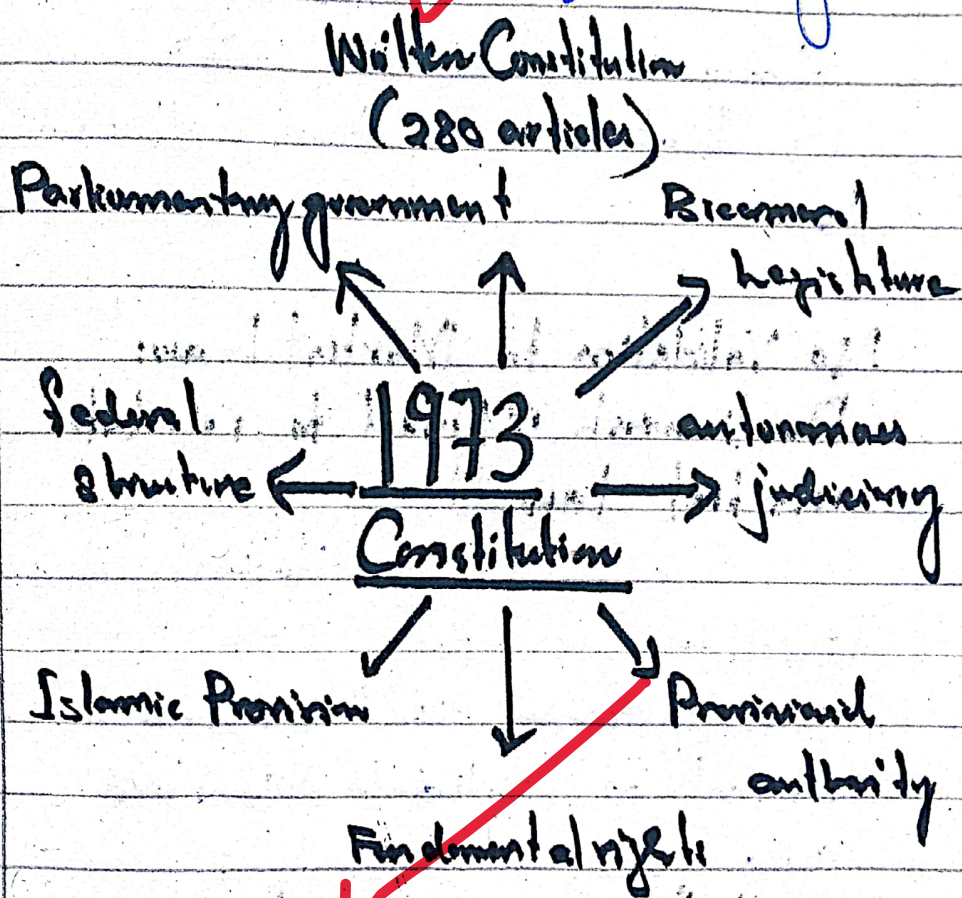 Written Constitution
(280 articles)
Parliamentary government
Bicameral
Legislture
federal
structure
1973
Constitution
autonomous
judiciary
Islamic Provision
Provincial
authority
Fundamental rights